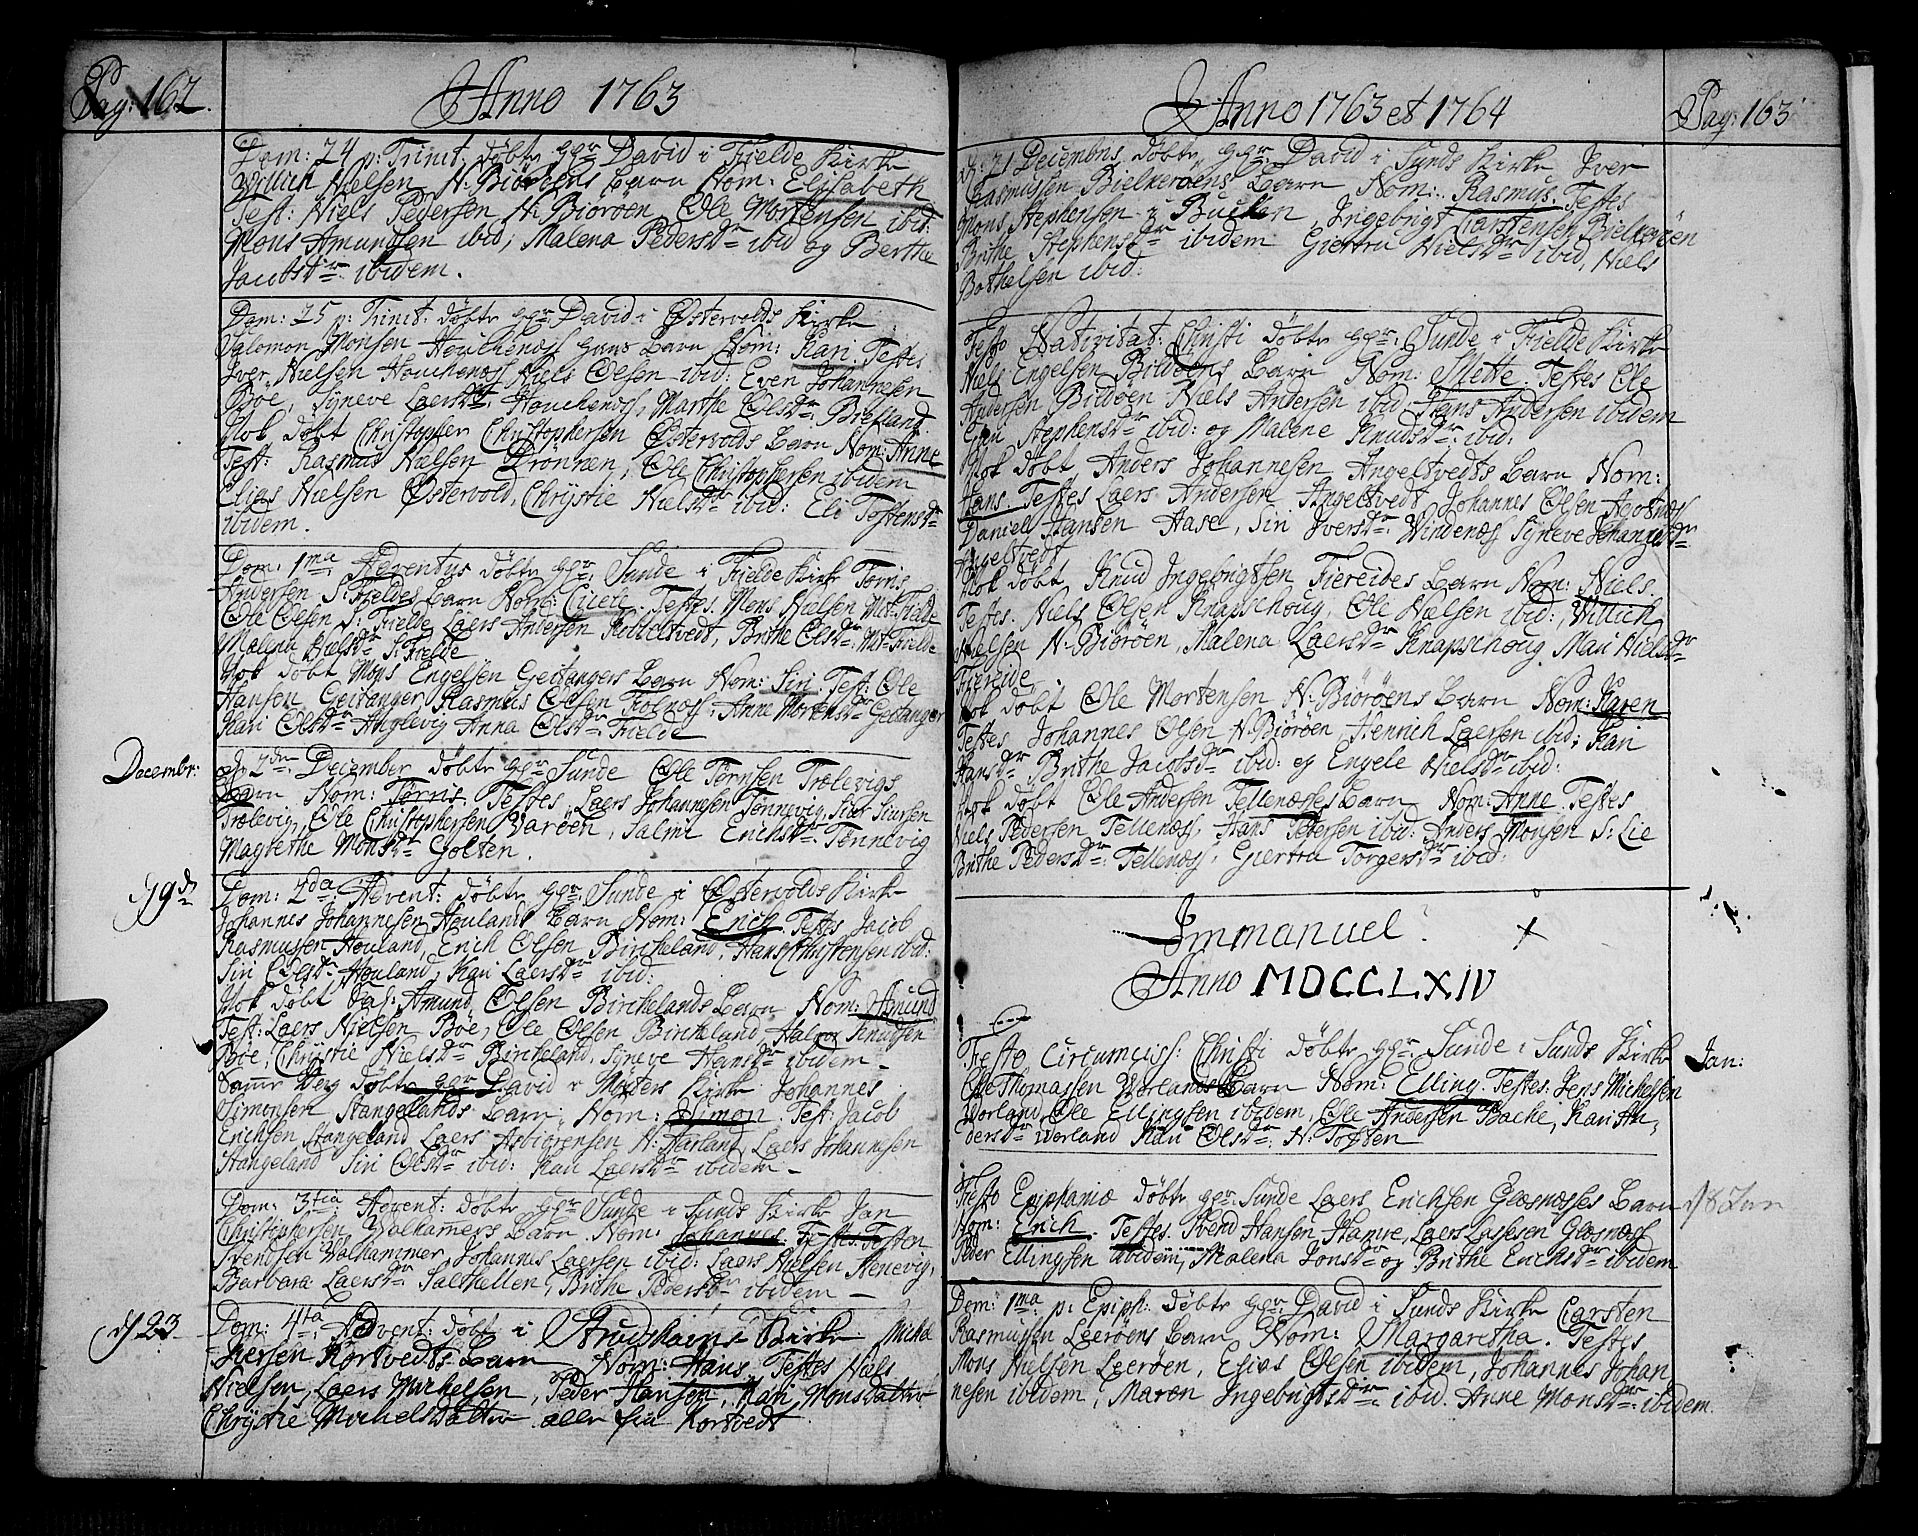 Pag: 162.
Anno 1763
Dom: 24 p: Trinit: døbte hr: David i Fielde Kirke
Willich Nielsen N: Biørøens Barn Nom: Elisabeth
Test: Niels Pedersen N: Biorøen, Ole Mortensen ibid:
Mons Amundsen ibid, Malena Pedersdr ibid og Berthe
Jacobsdr ibidem.
Dom: 25 p: Trinit: døbte hr: David i Østervolds Kirke
Salomon Monsen Houchenæss hans Barn Nom: Kari. Testes
Iver Nielsen Houchenæss Niels Olsen ibid: Even Johannesen
Bøe, Syneve Laersdr: Houchenæss, Marthe Olsdr:
Nok døbt Christopher Christophersen Østervolds Barn Nom: Anne
Test: Rasmus Nielsen Drönnen, Ole Christophersen ibidem
Elias Nielsen Østervold, Chrystie Nielsdr ibid: Eli Tostensdr
ibidem.
Dom: 1ma Adventus døbte hr: Sunde i Fielde Kirke Torris
Andersen S: Fieldes Barn Nom: Cicele. Testes. Mons Nielsen Met-Fielde
Ole Olsen S: Fielde Laers Andersen Kobbeltvedt, Brithe Olsdr: Met-Fielde
Malena Nielsdr S: Fielde
Nok døbt Mons Engelsen Geitangers Barn Nom: Siri. Test: Ole
Hansen Geitanger, Rasmus Olsen Trolnoss, Anne Mortensdr Geitanger
Kari Olsdr Anglevig Anna Olsdr Fielde
Decembr:
d: 2den December døbte hr Sunde Ole Tørrisen Trælevigs
Barn Nom: Tørris. Testes. Laers Johannesen Tennevig, Siur Siursen
Trælevig, Ole Christophersen Varöen, Salmi Erichsdr Tennevig
Magrethe Monsdr Golten.
d 9de
Dom: 2da Advent: døbte hr: Sunde i Østervolds Kirke
Johannes Johannesen Houlands Barn Nom: Erich. Testes Jacob
Rasmussen Houland, Erich Olsen Bircheland, Hans Christensen ibid:
Siri Olsdr Houland, Kari Laersdr ibid:
Nok døbt Amund Olsen Birchelands Barn Nom: Amund
Test: Laers Nielsen Bøe, Ole Olsen Bircheland Halvor Knudsen
Bøe, Chrystie Nielsdr Bircheland, Syneve Hansdr ibidem
Samme Dag døbte hr David i Møster Kirke Johannes
Simonsen Stangelands Barn, Nom: Simon. Test: Jacob
Erichsen Stangeland, Laers Asbiørensen N: Hufland, Laers Johannesen
Stangeland Siri Olsdr ibid: Kari Laersdr ibidem
Dom: 3tia Advent: døbte hr Sunde i Sunds Kirke Jan
Christophersen Walhamers Barn Nom: Johannes. Testes. Tosten
Svendsen Walhammer, Johannes Laersen ibid: Laers Nielsen Stenevig,
Barbara Laersdr Salthellen, Brithe Pedersdr ibidem
d 23
Dom: 4ta Advent: døbt i Strudshavns Kirke Michel
Iversen Kortvedts Barn Nom: Hans. Testes Niels
Nielsen, Laers Michelsen, Peder Hansen, Mari Monsdatter
Chrystie Michelsdatter alle fra Kortvedt.
Anno 1763 et 1764
Pag: 163
d: 21 Decembris døbte hr: David i Sunds Kirke Iver
Rasmussen Bielkerøens Barn Nom: Rasmus. Testes
Mons Stephensen i Bucken, Ingebrigt Carstensen Bielkerøen
Brithe Stephensdr ibidem Giertru Nielsdr ibid, Niels
Bothelsen ibid:
Festo Nativitat: Christi døbte hr: Sunde i Fielde Kirke
Niels Engelsen Bildøens Barn Nom: Mette. Testes Ole
Andersen Bildöen Niels Andersen ibid: Hans Andersen ibidem
Stephensdr ibid: og Malene Knudsdr ibid:
Nok døbt Anders Johannesen Angeltvedts Barn Nom:
Hans. Testes Laers Andersen Angeltvedt Johannes Olsen
Daniel Hansen Aase, Siri Iversdr: Windenæss Syneve Johannesdr
Angeltvedt
Nok døbt Knud Ingebrigtsen Fiereides Barn Nom: Niels.
Testes. Niels Olsen Knapschoug, Ole Nielsen ibid: Willich
Nielsen N: Biörøen, Malena Laersdr Knapschoug Mari Nielsdr
Fiereide
Nok døbt Ole Mortensen N: Biörøens Barn Nom: Karen
Testes Johannes Olsen N: Biørøen, Henrich Laersen ibid: Kari
Hansdr Brithe Jacobsdr ibid: og Engele Nielsdr ibid:
Nok døbt Ole Andersen Tellenæsses Barn Nom: Anne. Testes
Niels Pedersen Tellenæss, Hans Pedersen ibid: Anders Monsen S: Lie
Brithe Pedersdr: Tellenæss, Giertru Torgersdr ibid:
Immanuel
Anno MDCCLXIV
Jan:
Festo Circumciss: Christi døbte hr: Sunde i Sunds Kirke
Ole Thomassen Worlands Barn Nom: Elling. Testes. Jens Michelsen
Worland, Ole Ellingsen ibidem, Ole Andersen Backe, Kari An,
dersdr Worland Kari Olsdr: N: Tosten
Festo Epiphaniæ døbte hr: Sunde Laers Erichsen Glesnæsses Barn
d 8 Jan
Nom: Erich. Testes. Svend Hansen Hamre, Laers Lassesen Glesnæss
Peder Ellingsen ibidem, Malena Jonsdr og Brithe Erichsdr ibidem
Dom: 1ma p: Epiph: døbte hr: David i Sunds Kirke Carsten
Rasmussen Leerøens Barn Nom: Margaretha. Testes
Mons Nielsen Leerøen, Elias Olsen ibidem, Johannes Johan,
nesen ibidem, Maren Ingebrigtsdr ibid. Anne Monsdr: ibidem.